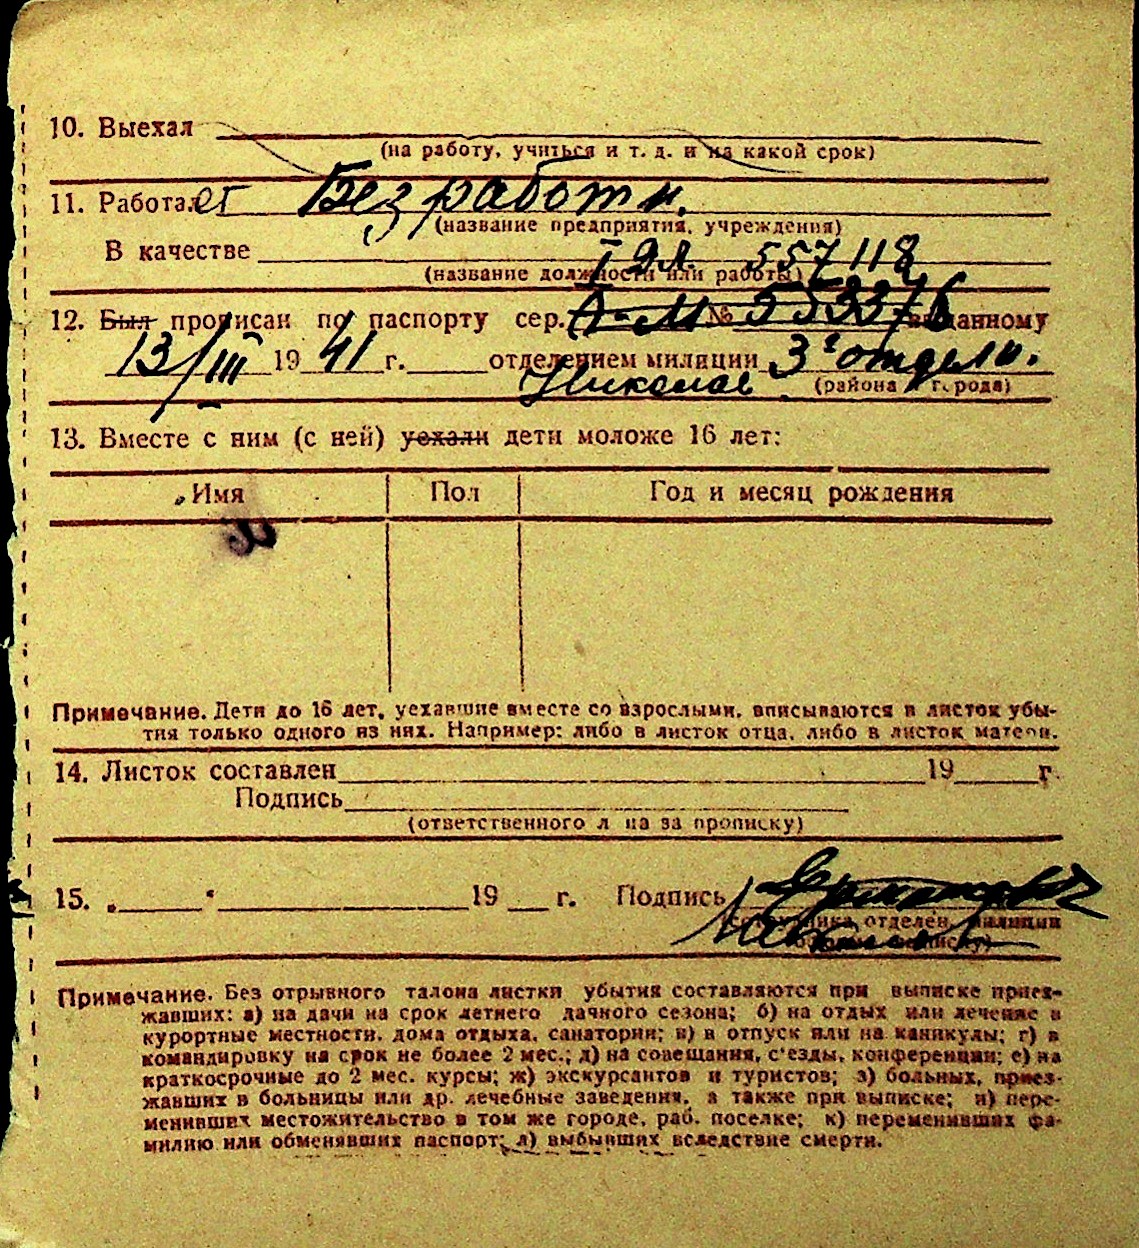 10. Выехал
(на работу, учиться и т. д. и на какой срок)
11. Работает Безработн.
(название предприятия, учреждения)
В качестве
557118
(название должности или работы)
12. Был прописан по паспорту сер. № 553376 выданному
13/III 1941 г. отделением милиции 3 отдели.
Николаев (района города)
13. Вместе с ним (с ней) уехали дети моложе 16 лет:
Имя Пол Год и месяц рождения
Примечание. Дети до 16 лет, уехавшие вместе со взрослыми, вписываются в листок убы-
тия только одного из них. Например: либо в листок отца, либо в листок матери.
14. Листок составлен 19 г.
Подпись
(ответственного лица за прописку)
15. „ “ 19 г. Подпись
сотрудника отделен. милиции
Примечание. Без отрывного талона листки убытия составляются при выписке приез-
жавших: а) на дачи на срок летнего дачного сезона; б) на отдых или лечение в
курортные местности, дома отдыха, санатории; в) в отпуск или на каникулы; г) в
командировку на срок не более 2 мес.; д) на совещания, с'езды, конференции; е) на
краткосрочные до 2 мес. курсы; ж) экскурсантов и туристов; з) больных, приез-
жавших в больницы или др. лечебные заведения, а также при выписке; и) пере-
менивших местожительство в том же городе, раб. поселке; к) переменивших фа-
милию или обменявших паспорт; л) выбывших вследствие смерти.